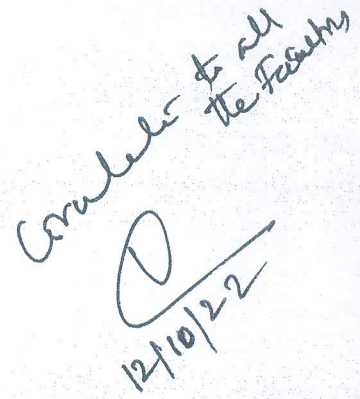 Circulate to all
the Faculties
12/10/22